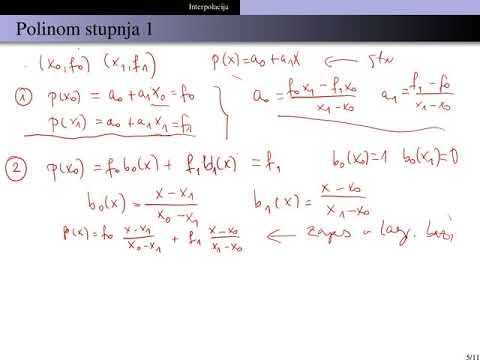 Interpolacija
Polinom stupnja 1
(x₀,f₀) (x₁,f₁) p(x)=a₀+a₁x
① p(x₀) = a₀+a₁x₀=f₀ a₀ = (f₀x₁-f₁x₀)/(x₁-x₀) a₁= (f₁-f₀)/(x₁-x₀)
p(x₁) = a₀+a₁x₁=f₁
② p(x₀)=f₀b₀(x)+ f₁b₁(x) = f₁ b₀(x₀)=1 b₀(x₁)=0
b₀(x)= (x-x₁)/(x₀-x₁) b₁(x)= (x-x₀)/(x₁-x₀)
p(x)=f₀ (x-x₁)/(x₀-x₁) + f₁ (x-x₀)/(x₁-x₀) ← zapis u Lag. bazi
5/11